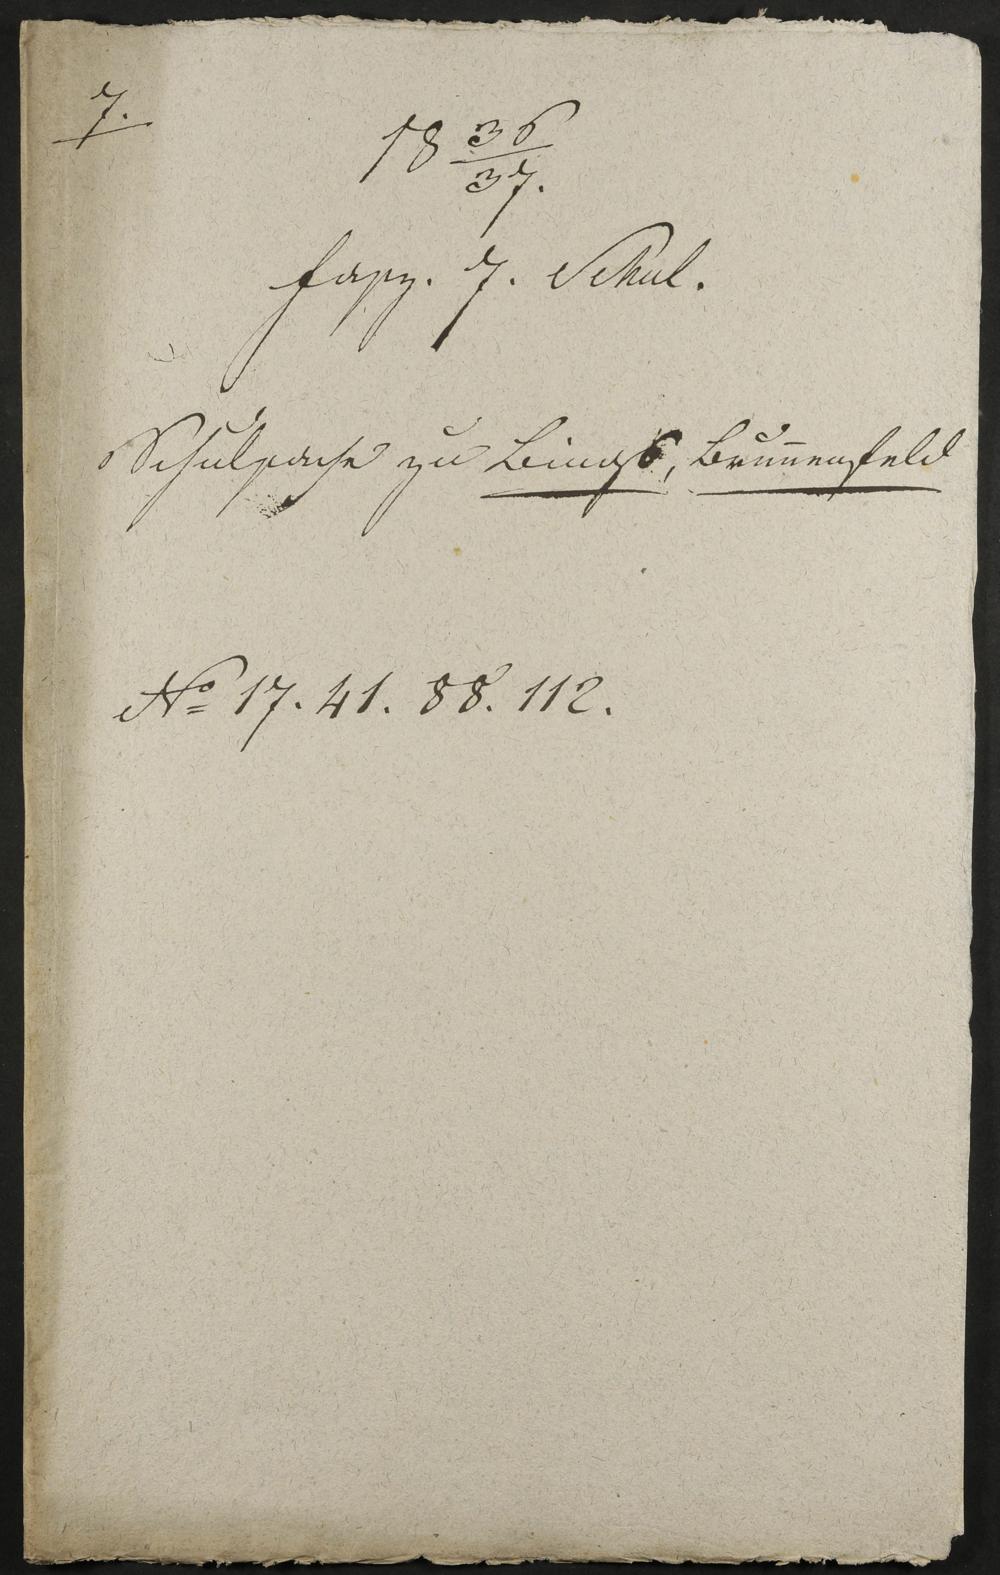 7.
18 36/37.
Fasz. 7. Schul.
Schulsache zu Bings, Brunnenfeld
No 17. 41. 88. 112.